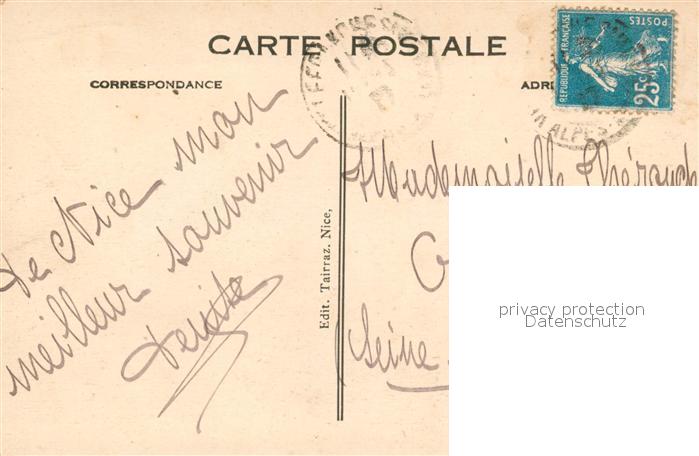 CARTE POSTALE
CORRESPONDANCE
ADR
REPUBLIQUE FRANÇAISE
POSTES
25c
ALPES
De Nice mon
meilleur souvenir
Edit. Tairraz. Nice,
Mademoiselle
Seine
privacy protection
Datenschutz